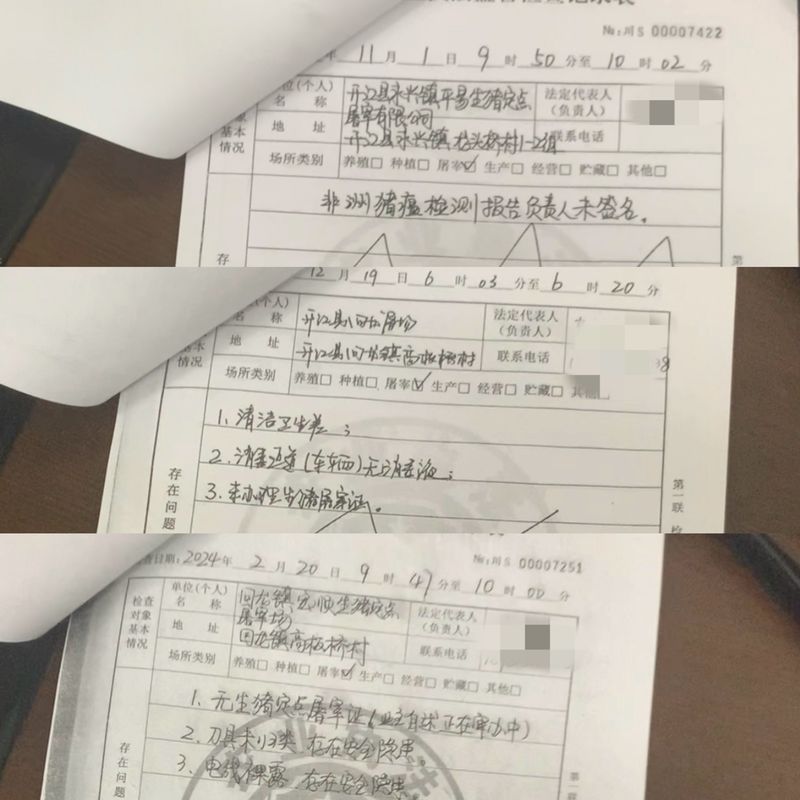 №:川S 00007422
年 11 月 1 日 9 时 50 分至 10 时 02 分
单位(个人)名称 开江县永兴镇平易生猪定点屠宰有限公司 法定代表人(负责人)
地址 开江县永兴镇龙头桥村1-2组 联系电话
基本情况
场所类别 养殖□ 种植□ 屠宰☑ 生产□ 经营□ 贮藏□ 其他□
非洲猪瘟检测报告负责人未签名。
存
第
12 月 19 日 6 时 03 分至 6 时 20 分
(个人)名称 开江县回龙屠场 法定代表人(负责人)
地址 开江县回龙镇高板桥村 联系电话
基本情况
场所类别 养殖□ 种植□ 屠宰☑ 生产□ 经营□ 贮藏□ 其他
1、清洁卫生差;
2、消毒通道(车辆)无消毒液;
3、未办理生猪屠宰证。
存在问题
第一联
查日期:2024年 2 月 20 日 9 时 47 分至 10 时 00 分
№:川S 00007251
检查对象基本情况
单位(个人)名称 回龙镇宏顺生猪定点屠宰场 法定代表人(负责人)
地址 回龙镇高板桥村 联系电话
场所类别 养殖□ 种植□ 屠宰☑ 生产□ 经营□ 贮藏□ 其他□
1、无生猪定点屠宰证(业主自述正在审办中)
2、刀具未归类 存在安全隐患。
3、电线裸露 存在安全隐患。
存在问题
第一联